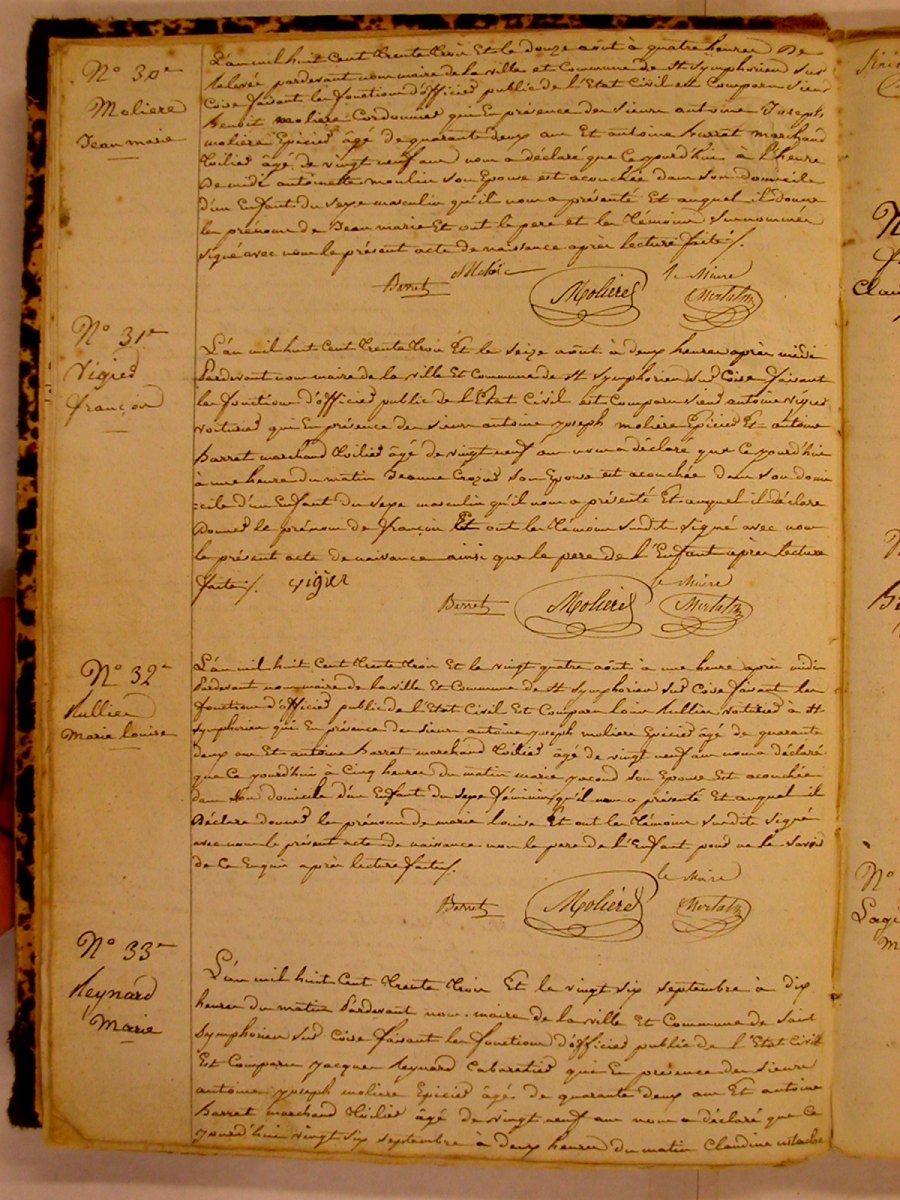 N° 30e
Moliere
Jean marie
L'an mil huit Cent trente trois Et le douze août à quatre heures De
Relevée pardevant nous maire de la ville et Commune de St Symphorien sur
Coise faisant les fonctions d'officier public de l'Etat Civil est Comparu Sieur
Benoit moliere Cordonnier qui En présence des Sieurs antoine Joseph
moliere Epicier âgé de quarante deux ans Et antoine barret marchand
toilier âgé de vingt neuf ans nous a déclaré que Ce jourd'hui à l'heure
De midi antoinette moulin son Epouse est acouchée dans son domicile
d'un Enfant du sexe masculin qu'il nous a présenté Et auquel il donne
les prenoms de Jean marie Et ont le pere et les témoins surnommés
signé avec nous le présent acte de naissance après lecture faite /.
Barret
Moliére
le Maire
N° 31e
Vigier
françois
L'an mil huit Cent trente trois Et le seize août à deux heures après midi
Pardevant nous maire de la ville Et Commune de St Symphorien sur Coise faisant
les fonctions d'officier public de l'Etat Civil est Comparu Sieur antoine vigier
voiturier qui En présence des sieurs antoine joseph moliere Epicier Et antoine
Barret marchand toilier âgé de vingt neuf ans nous a déclaré que Ce jourd'hui
à une heure du matin Jeanne son Epouse est acouchée dans son domi
cile d'un Enfant du sexe masculin qu'il nous a présenté Et auquel il déclare
Donner le prénom de françois Et ont les témoins susdits signé avec nous
le présent acte de naissance ainsi que le pere de l'Enfant après lecture
faite /. vigier
Barret
Moliére
le Maire
N° 32e
Rullien
Marie louise
L'an mil huit Cent trente trois Et le vingt quatre août à une heure après midi
Pardevant nous maire de la ville Et Commune de St Symphorien sur Coise faisant les
fonctions d'officier public de l'Etat Civil Est Comparu louis Rullien voiturier à St
symphorien qui En présence des sieurs antoine joseph moliere Epicier âgé de quarante
deux ans Et antoine Barret marchand toilier âgé de vingt neuf ans nous a déclaré
que Ce jourd'hui à Cinq heures du matin marie son Epouse Est acouchée
dans son domicile d'un Enfant du sexe féminin qu'il nous a présenté Et auquel il
Déclare donner le prénom de marie louise Et ont les témoins susdits signé
avec nous le présent acte de naissance non le pere de l'Enfant pour ne le savoir
de Ce Enquis après lecture faite /.
Barret
Moliére
le Maire
N° 33e
Reynard
Marie
L'an mil huit Cent trente trois Et le vingt six septembre à dix
heures du matin Pardevant nous maire de la ville Et Commune de Saint
Symphorien sur Coise faisant les fonctions d'officier public de l'Etat Civil
Est Comparu Jacques Reynard Cabaretier qui En présence des Sieurs
antoine joseph moliere Epicier âgé de quarante deux ans Et antoine
Barret marchand toilier âgé de vingt neuf ans nous a déclaré que Ce
jourd'hui vingt six septembre à deux heures du matin Claudine